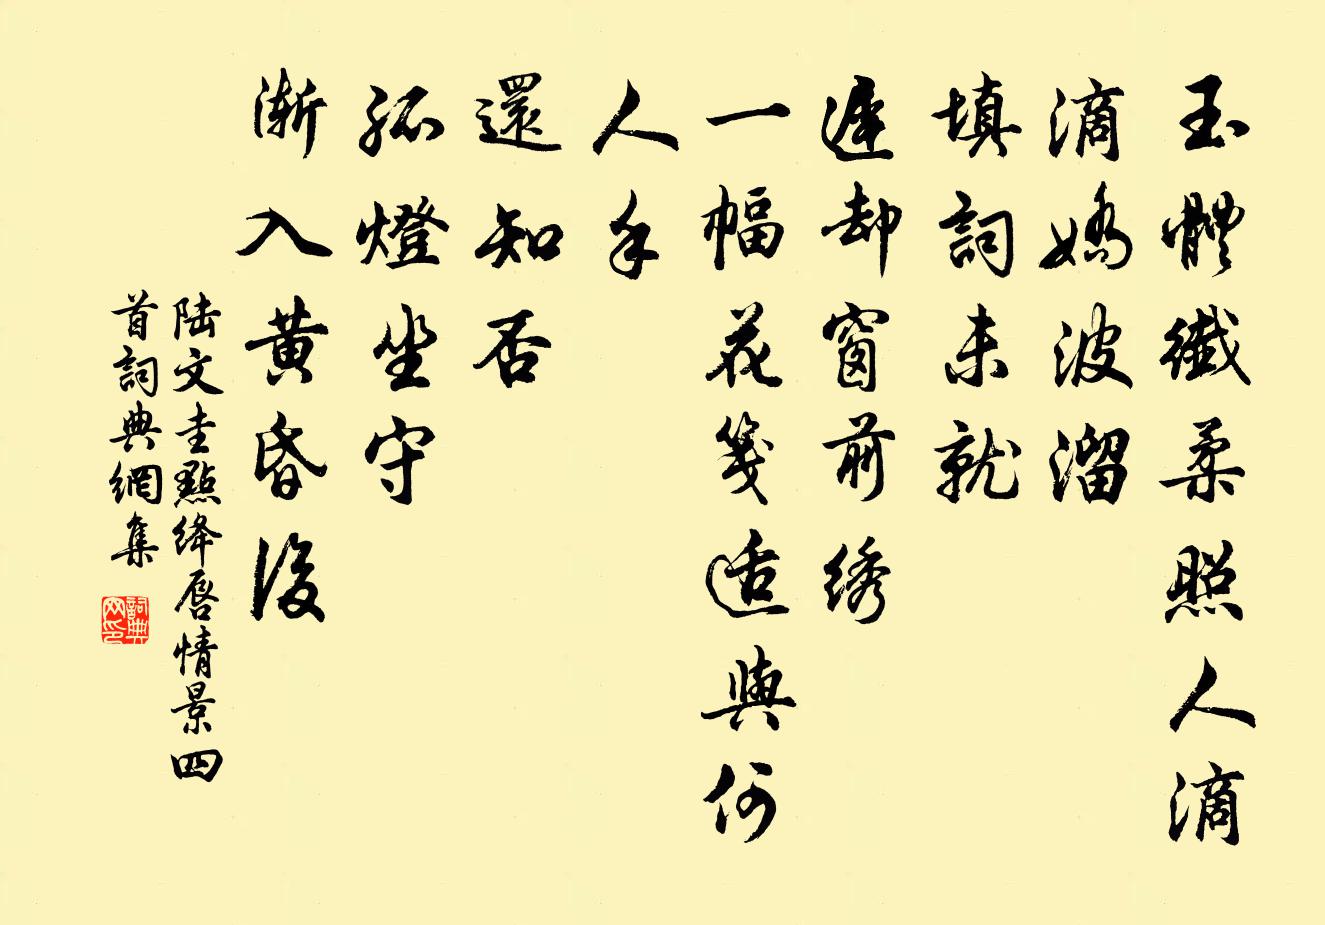 玉體纖柔照人滴
滴嬌波溜
填詞未就
遲却窗前绣
一幅花箋适與何
人手
還知否
孤燈坐守
漸入黄昏後
陆文圭點绛唇情景四
首詞典網集
詞典网印